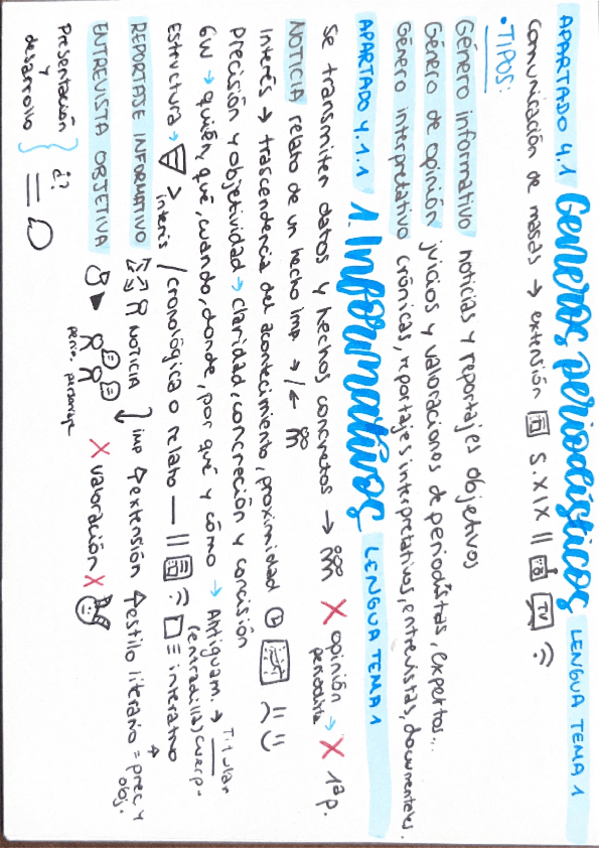 APARTADO 4.1 Géneros periodísticos LENGUA TEMA 1
comunicación de masas → extensión S.XIX || TV
• TIPOS:
Género informativo noticias y reportajes objetivos
Género de opinión juicios y valoraciones de periodistas, expertos...
Género interpretativo crónicas, reportajes interpretativos, entrevistas, documentales.
APARTADO 4.1.1 1. Informativos LENGUA TEMA 1
Se transmiten datos y hechos concretos → X opinión periodista → X 1ª p.
NOTICIA relato de un hecho imp → / ←
Interés → trascendencia del acontecimiento, proximidad
Precisión y objetividad → claridad, concreción y concisión
6W → quién, qué, cuándo, donde, por qué y cómo → Antiguam. → Titular
(entradilla) cuerp.
Estructura → > interés / cronológica o relato — || = interativo
REPORTAJE INFORMATIVO NOTICIA imp ↑ extensión ↑ estilo literario = prec y obj.
ENTREVISTA OBJETIVA perio. personaje X valoración X
Presentación y desarrollo } ¿? =